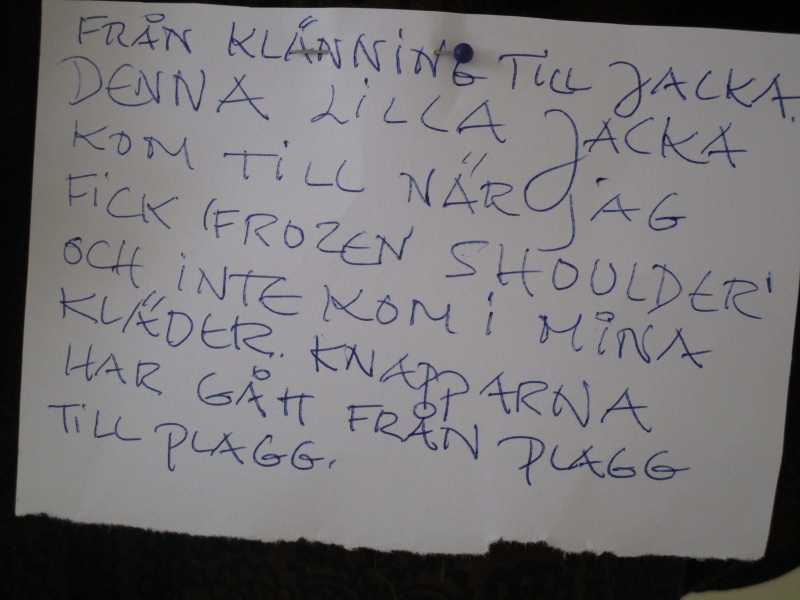 FRÅN KLÄNNING TILL JACKA.
DENNA LILLA JACKA
KOM TILL NÄR JAG
FICK 'FROZEN SHOULDER'
OCH INTE KOM I MINA
KLÄDER. KNAPPARNA
HAR GÅTT FRÅN PLAGG
TILL PLAGG.